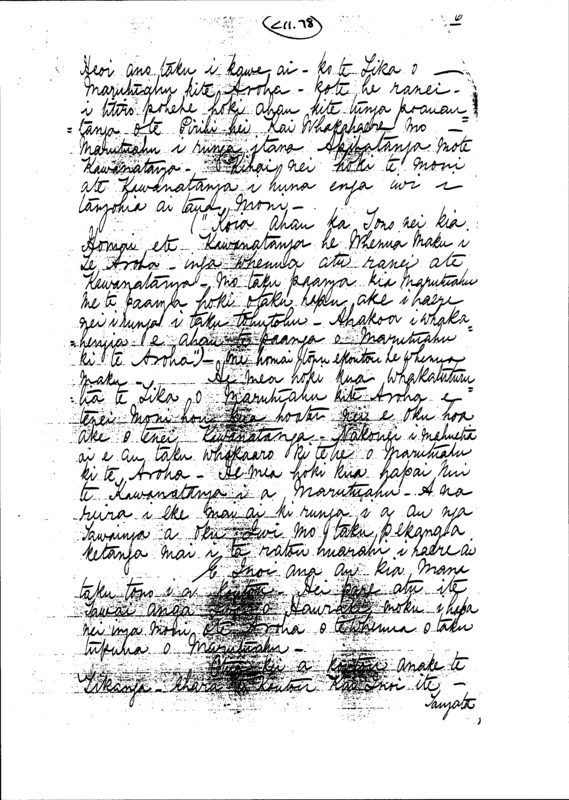 <11.78
6
Heoi ano taku i kawe ai - ko te Tika o -
Marutuahu ki te Aroha - ko te he ranei -
i titiro pohehe hoki ahau ki te tunga
= tanga o te Piriti hei Kai Whakahaere mo -
Marutuahu i runga i tana mo te
Kawanatanga - Kihai nei hoki te moni
a te Kawanatanga i huna enga iwi i
tangohia ai taua Moni -
("Koia ahau ka Tono nei kia
Homai e te Kawanatanga he Whenua Maku i
Te Aroha - inga whenua atu ranei a te
Kawanatanga - Mo taku paanga kia Marutuahu
me te paanga hoki o taku hapu ake i haere
nei i runga i taku tohutohu - Ahakoa i whaka
= hengia e ahau te paanga o Marutuahu
ki te Aroha") - me homai e koutou he whenua
maku - He mea hoki kua whakatuturu
= tia te Tika o Marutuahu ki te Aroha e
tenei Moni hou kua hoatu nei e oku hoa
ake o tenei Kawanatanga - Nakonei i mahueta
ai e au taku whakaaro ki te he o Marutuahu
ki te Aroha - He mea hoki kua hapai nui
te Kawanatanga i a Marutuahu - A na
reira i eke mai ai ki runga i a au nga
tawainga a oku Iwi mo taku pekanga
ketanga mai i ta ratou huarahi i haere ai
E Inoi ana au kia Mana
taku tono i a koutou - Hei pare atu i te
Tawai anga o Hauraki moku i hapa
nei inga moni o te Aroha o te whenua o taku
tupuna o Marutuahu -
Kei a koutou anake te
Tikanga - koutou Kai Inoi i te -
Tangata